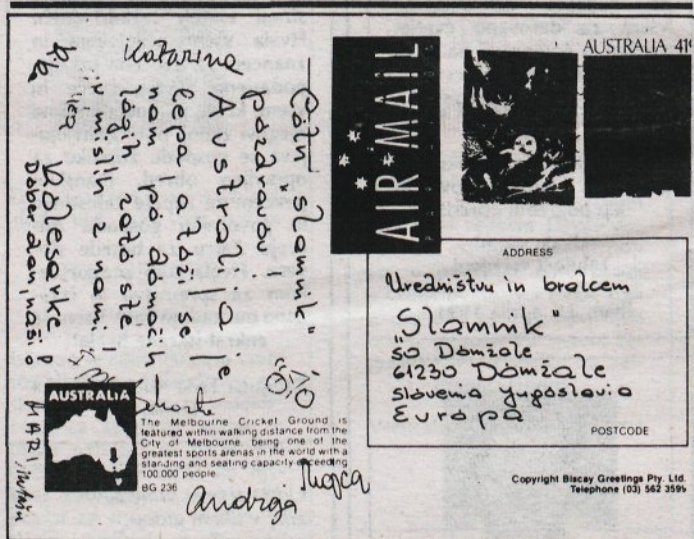 "slamnik"
pozdravov
Australija je
lepa, pa tóži se
nam pó dómačih
zató ste
v mislih z nami
Kólesarke!
Dober dan, naši!
Katarina
MARI
Andreja
Mojca
AUSTRALIA
The Melbourne Cricket Ground is
featured within walking distance from the
City of Melbourne being one of the
greatest sports arenas in the world with a
standing and seating capacity exceeding
100.000 people
BG 236
AIR MAIL
AUSTRALIA 41
ADDRESS
Uredništvu in bralcem
"Slamnik"
SO Domžale
61230 Domžale
Slovenia Yugoslavia
Evropa
POSTCODE
Copyright Biscay Greetings Pty. Ltd.
Telephone (03) 562 3595